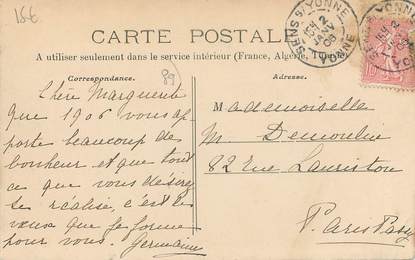 15€
CARTE POSTALE
A utiliser seulement dans le service intérieur (France, Algérie,
Correspondance.
Adresse.
89
SENS S/ YONNE
YONNE
Chère Marguerite
que 1906 vous ap
porte beaucoup de
bonheur et que tout
ce que vous désirez
se réalise, c'est les
vœux que je forme
pour vous. Germaine
Mademoiselle
M. Demoulin
82 rue Lauriston
Paris Passy